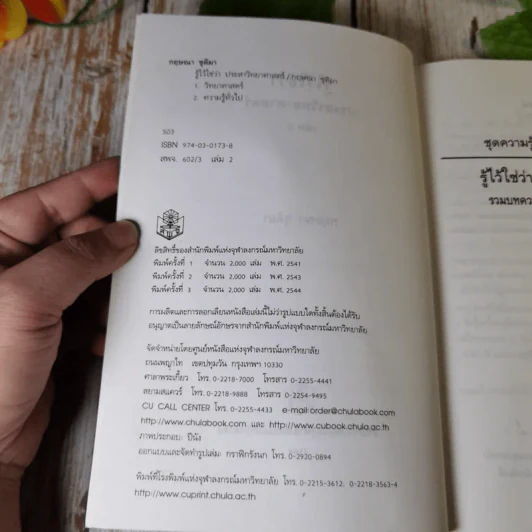 กฤษณา ชุติมา
รู้ไว้ใช่ว่า ประสาวิทยาศาสตร์/กฤษณา ชุติมา
1. วิทยาศาสตร์
2. ความรู้ทั่วไป
503
ISBN 974-03-0173-8
สพจ. 602/3 เล่ม 2
ลิขสิทธิ์ของสำนักพิมพ์แห่งจุฬาลงกรณ์มหาวิทยาลัย
พิมพ์ครั้งที่ 1 จำนวน 2,000 เล่ม พ.ศ. 2541
พิมพ์ครั้งที่ 2 จำนวน 2,000 เล่ม พ.ศ. 2543
พิมพ์ครั้งที่ 3 จำนวน 2,000 เล่ม พ.ศ. 2544
การผลิตและการลอกเลียนหนังสือเล่มนี้ไม่ว่ารูปแบบใดทั้งสิ้นต้องได้รับ
อนุญาตเป็นลายลักษณ์อักษรจากสำนักพิมพ์แห่งจุฬาลงกรณ์มหาวิทยาลัย
จัดจำหน่ายโดยศูนย์หนังสือแห่งจุฬาลงกรณ์มหาวิทยาลัย
ถนนพญาไท เขตปทุมวัน กรุงเทพฯ 10330
ศาลาพระเกี้ยว โทร. 0-2218-7000 โทรสาร 0-2255-4441
สยามสแควร์ โทร. 0-2218-9888 โทรสาร 0-2254-9495
CU CALL CENTER โทร. 0-2255-4433 e-mail order@chulabook.com
http://www.chulabook.com และ http://www.cubook.chula.ac.th
ภาพประกอบ: ปีนัง
ออกแบบและจัดทำรูปเล่ม: กราฟิกรังนก โทร. 0-2920-0894
พิมพ์ที่โรงพิมพ์แห่งจุฬาลงกรณ์มหาวิทยาลัย โทร. 0-2215-3612, 0-2218-3563-4
http://www.cuprint.chula.ac.th
ชุดความรู้
รู้ไว้ใช่ว่า
รวมบทควา